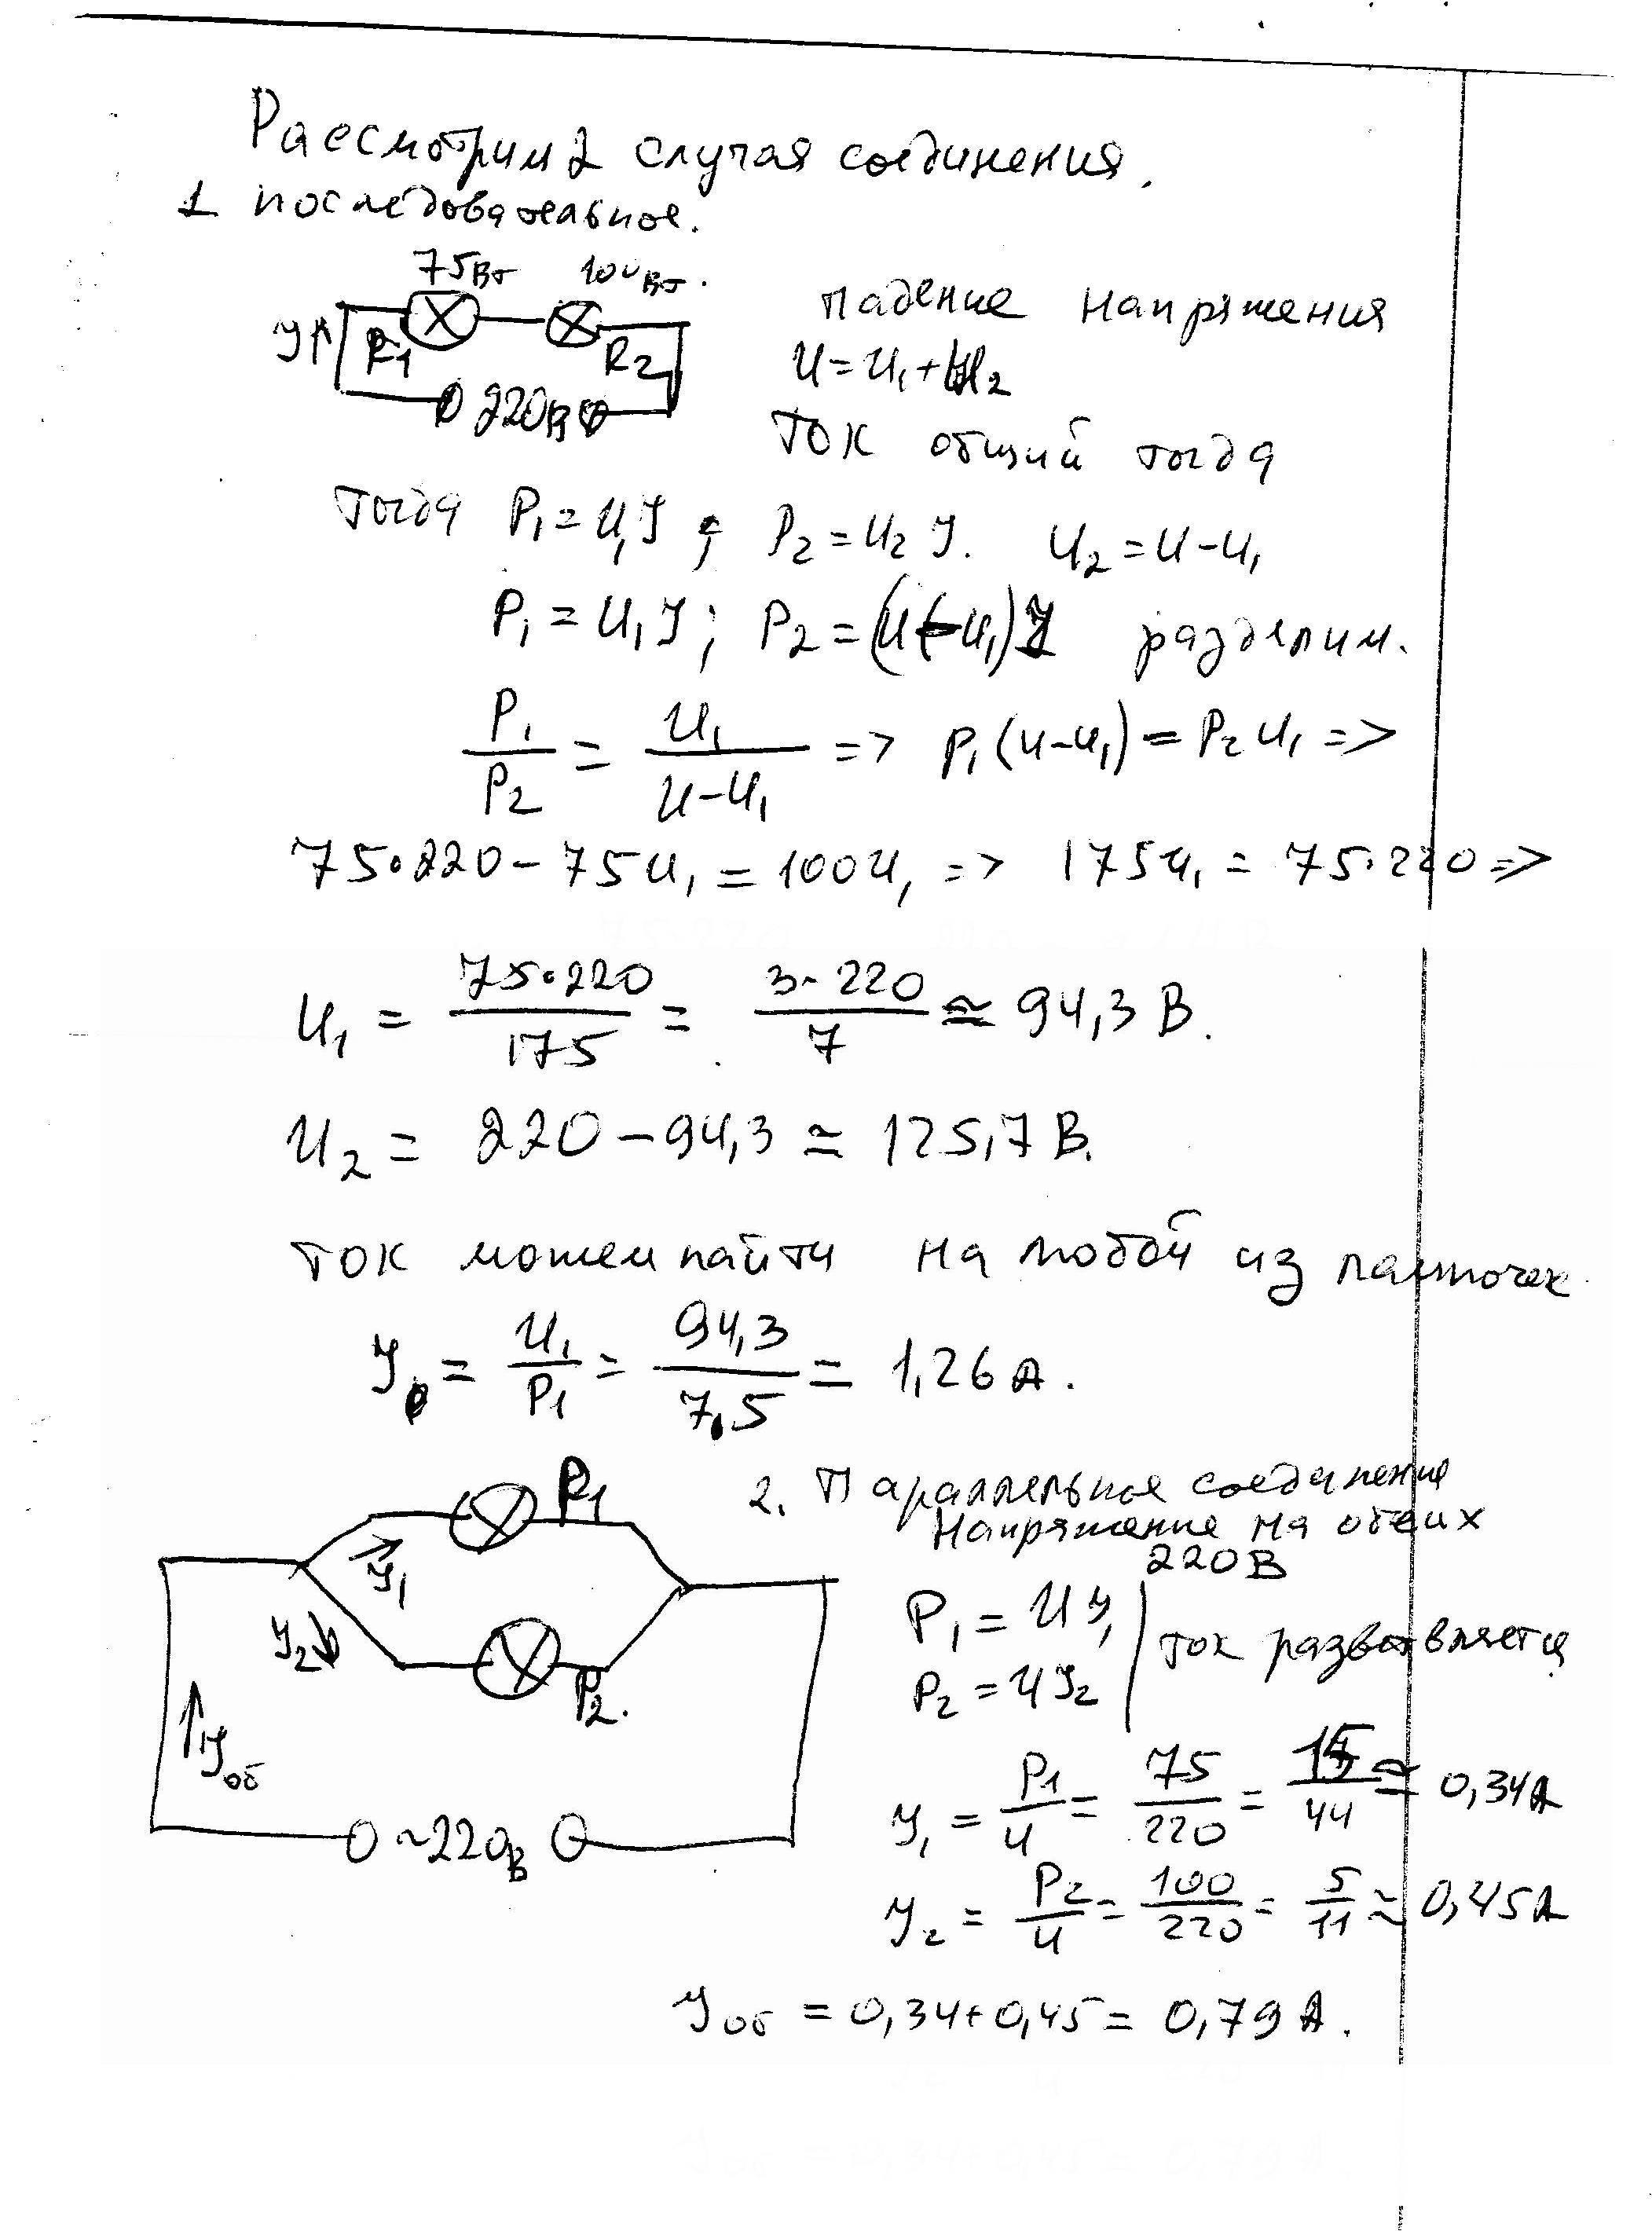 Рассмотрим 2 случая соединения.
1 последовательное.
75Вт 100Вт.
У R1 R2
220В
падение напряжения
U=U1+U2
ток общий тогда
тогда P1=U1У; P2=U2У. U2=U-U1
P1=U1У; P2=(U-U1)У разделим.
P1/P2 = U1/(U-U1) => P1(U-U1)=P2U1 =>
75·220-75U1=100U1 => 175U1=75·220 =>
U1 = 75·220/175 = 3·220/7 ≃ 94,3 В.
U2 = 220-94,3 ≃ 125,7 В.
ток можем найти на любой из лампочек
У = U1/P1 = 94,3/7,5 = 1,26 А.
2. Параллельное соединение
Напряжение на обеих
220В
P1
У1
У2
P2.
Уоб
~220В
P1=UУ1
P2=UУ2
ток разветвляется
У1 = P1/U = 75/220 = 15/44 ≃ 0,34А
У2 = P2/U = 100/220 = 5/11 ≈ 0,45А
Уоб = 0,34+0,45 = 0,79 А.